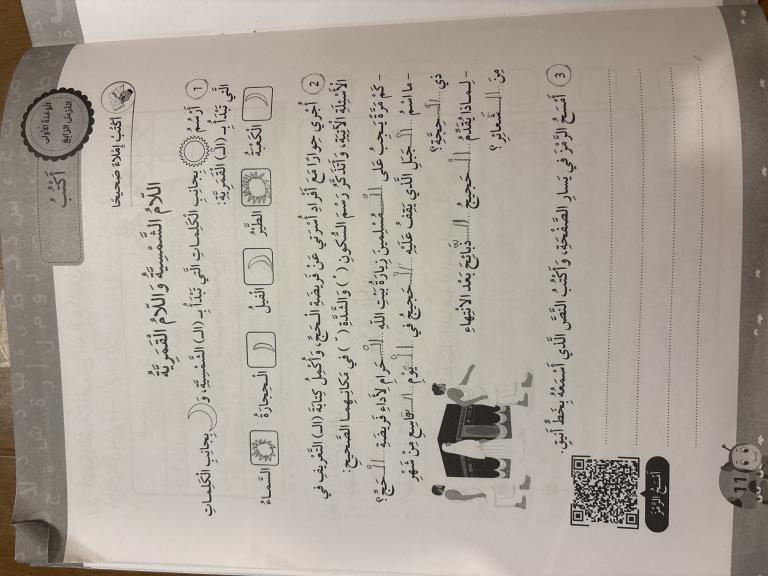 الوَحْدَةُ الأولى
الدَّرْسُ الرّابِعُ
أَكْتُبُ
أَكْتُبُ إمْلاءً صَحيحًا
اللّامُ الشَّمْسِيَّةُ وَاللّامُ الْقَمَرِيَّةُ
1 أَرْسُمُ بِجانِبِ الْكَلِماتِ الَّتي تَبْدَأُ بِـ (الـ) الشَّمْسِيَّةِ، وَ بِجانِبِ الْكَلِماتِ
الَّتي تَبْدَأُ بِـ (الـ) الْقَمَرِيَّةِ:
الْكَعْبَةُ الطَّيْرُ الْفيلُ الْـحِجارَةُ السَّماءُ
2 أُجْري حِوارًا مَعَ أَفْرادِ أُسْرَتي عَنْ فَريضَةِ الْـحَجِّ، وَأُكْمِلُ كِتابَةَ (الـ) التَّعْريفِ في
الْأَسْئِلَةِ الْآتِيَةِ، وَأَتَذَكَّرُ رَسْمَ السُّكونِ ( ْ ) وَالشَّدَّةِ ( ّ ) في مَكانِـهِما الصَّحيحِ:
- كَمْ مَرَّةً يَـجِبُ عَلى الْـمُسْلِمينَ زِيارَةُ بَيْتِ اللهِ الْـحَرامِ لِأَداءِ فَريضَةِ الْـحَجِّ؟
- ما اسْمُ الْـجَبَلِ الَّذي يَقِفُ عَلَيْهِ الْـحَجيجُ في الْـيَوْمِ الـتّاسِعِ مِنْ شَهْرِ
ذي الْـحِجَّةِ؟
- لِـماذا يُقَدِّمُ الْـحَجيجُ الـذَّبائِحَ بَعْدَ الانْتِهاءِ
مِنَ الـشَّعائِرِ؟
3 أَمْسَحُ الرَّمْزَ في يَسارِ الصَّفْحَةِ، وَأَكْتُبُ النَّصَّ الَّذي أَسْمَعُهُ بِخَطٍّ أَنيقٍ.
أَمْسَحُ الرَّمْزَ
11